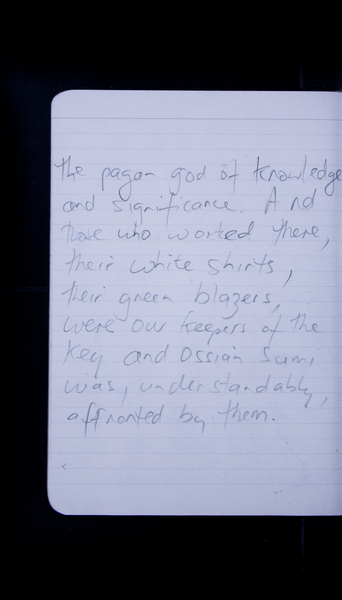 the pagan god of knowledge
and significance. And
those who worked there,
their white shirts,
their green blazers,
were our keepers of the
key and Ossian Sum,
was, understandably,
affronted by them.